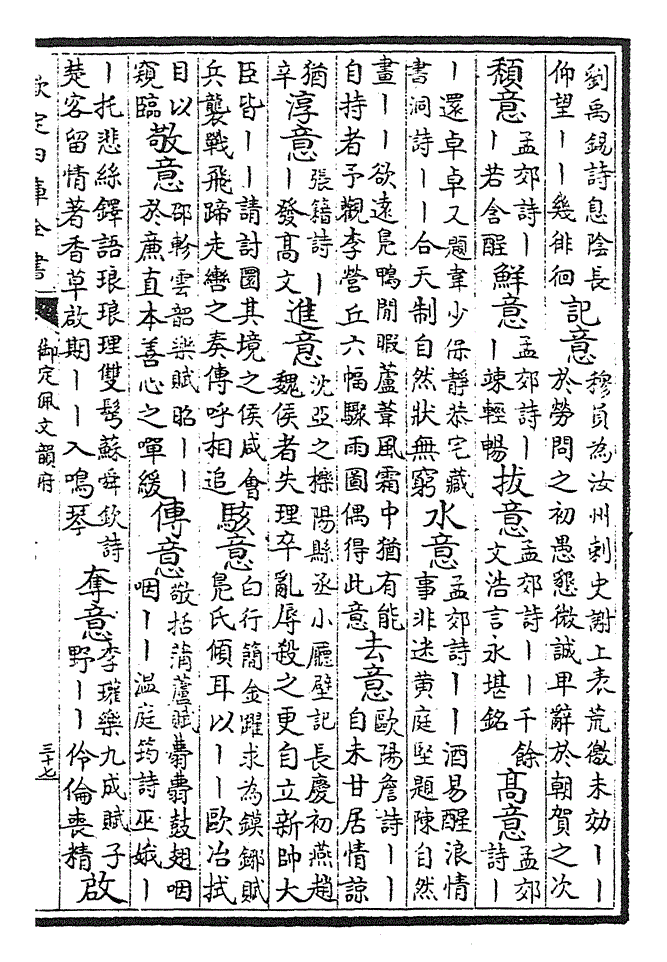 劉禹錫詩息陰長
仰望丨丨幾徘徊
記意
穆員為汝州刺史謝上表荒徼未効丨丨
於勞問之初愚懇微誠卑辭於朝賀之次
頽意
孟郊詩丨
丨若含酲
鮮意
孟郊詩丨
丨竦輕暢
拔意
孟郊詩丨丨千餘
文浩言永堪銘
髙意
孟郊
詩丨
丨還卓卓又題韋少保靜恭宅藏
書洞詩丨丨合天制自然狀無窮
水意
孟郊詩丨丨酒易醒浪情
事非迷黄庭堅題陳自然
畫丨丨欲遠鳧鴨閒暇蘆葦風霜中猶有能
自持者予觀李營丘六幅驟雨圖偶得此意
去意
歐陽詹詩丨丨
自未甘居情諒
猶
辛
淳意
張籍詩丨
丨發髙文
進意
沈亞之櫟陽縣丞小廳壁記長慶初燕趙
魏侯者失理卒亂辱殺之更自立新帥大
臣皆丨丨請討圜其境之侯咸會
兵襲戰飛蹄走轡之奏傳呼相追
駭意
白行簡金躍求為鏌鋣賦
鳧氏傾耳以丨丨歐冶拭
目以
窺臨
敬意
邵軫雲韶樂賦昭丨丨
於廉直本善心之嘽緩
傳意
敬括蒲蘆賦翥翥鼓翅咽
咽丨丨温庭筠詩巫娥丨
丨托悲絲鐸語琅琅理雙髩蘇舜欽詩
楚客留情著香草啟期丨丨入鳴琴
奪意
李璀樂九成賦子
野丨丨伶倫喪精
啟
欽定四庫全書
御定佩文韻府
三十七